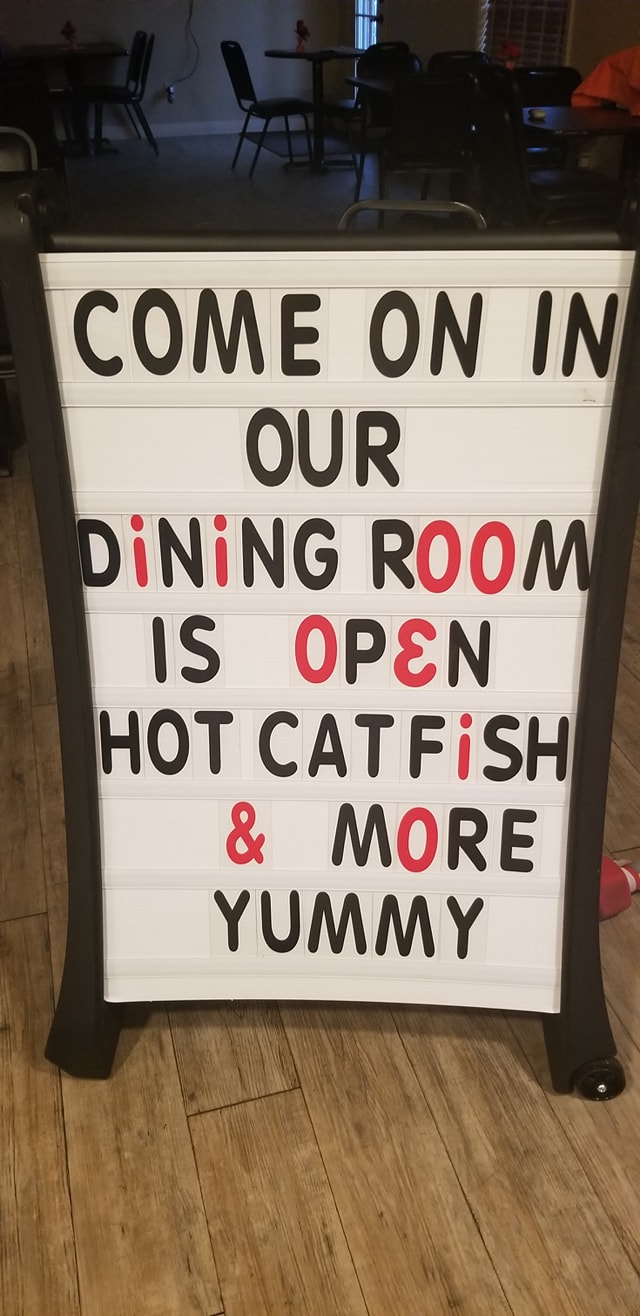 COME ON IN
OUR
DiNiNG ROOM
IS OPEN
HOT CATFiSH
& MORE
YUMMY